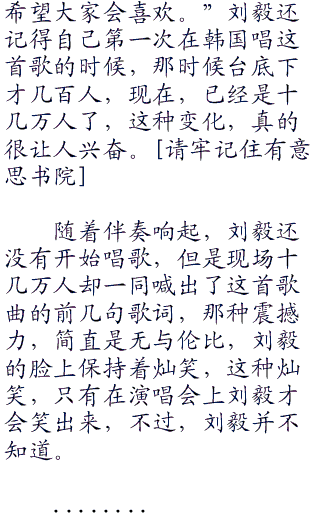 希望大家会喜欢。”刘毅还
记得自己第一次在韩国唱这
首歌的时候，那时候台底下
才几百人，现在，已经是十
几万人了，这种变化，真的
很让人兴奋。[请牢记住有意
思书院]
随着伴奏响起，刘毅还
没有开始唱歌，但是现场十
几万人却一同喊出了这首歌
曲的前几句歌词，那种震撼
力，简直是无与伦比，刘毅
的脸上保持着灿笑，这种灿
笑，只有在演唱会上刘毅才
会笑出来，不过，刘毅并不
知道。
........